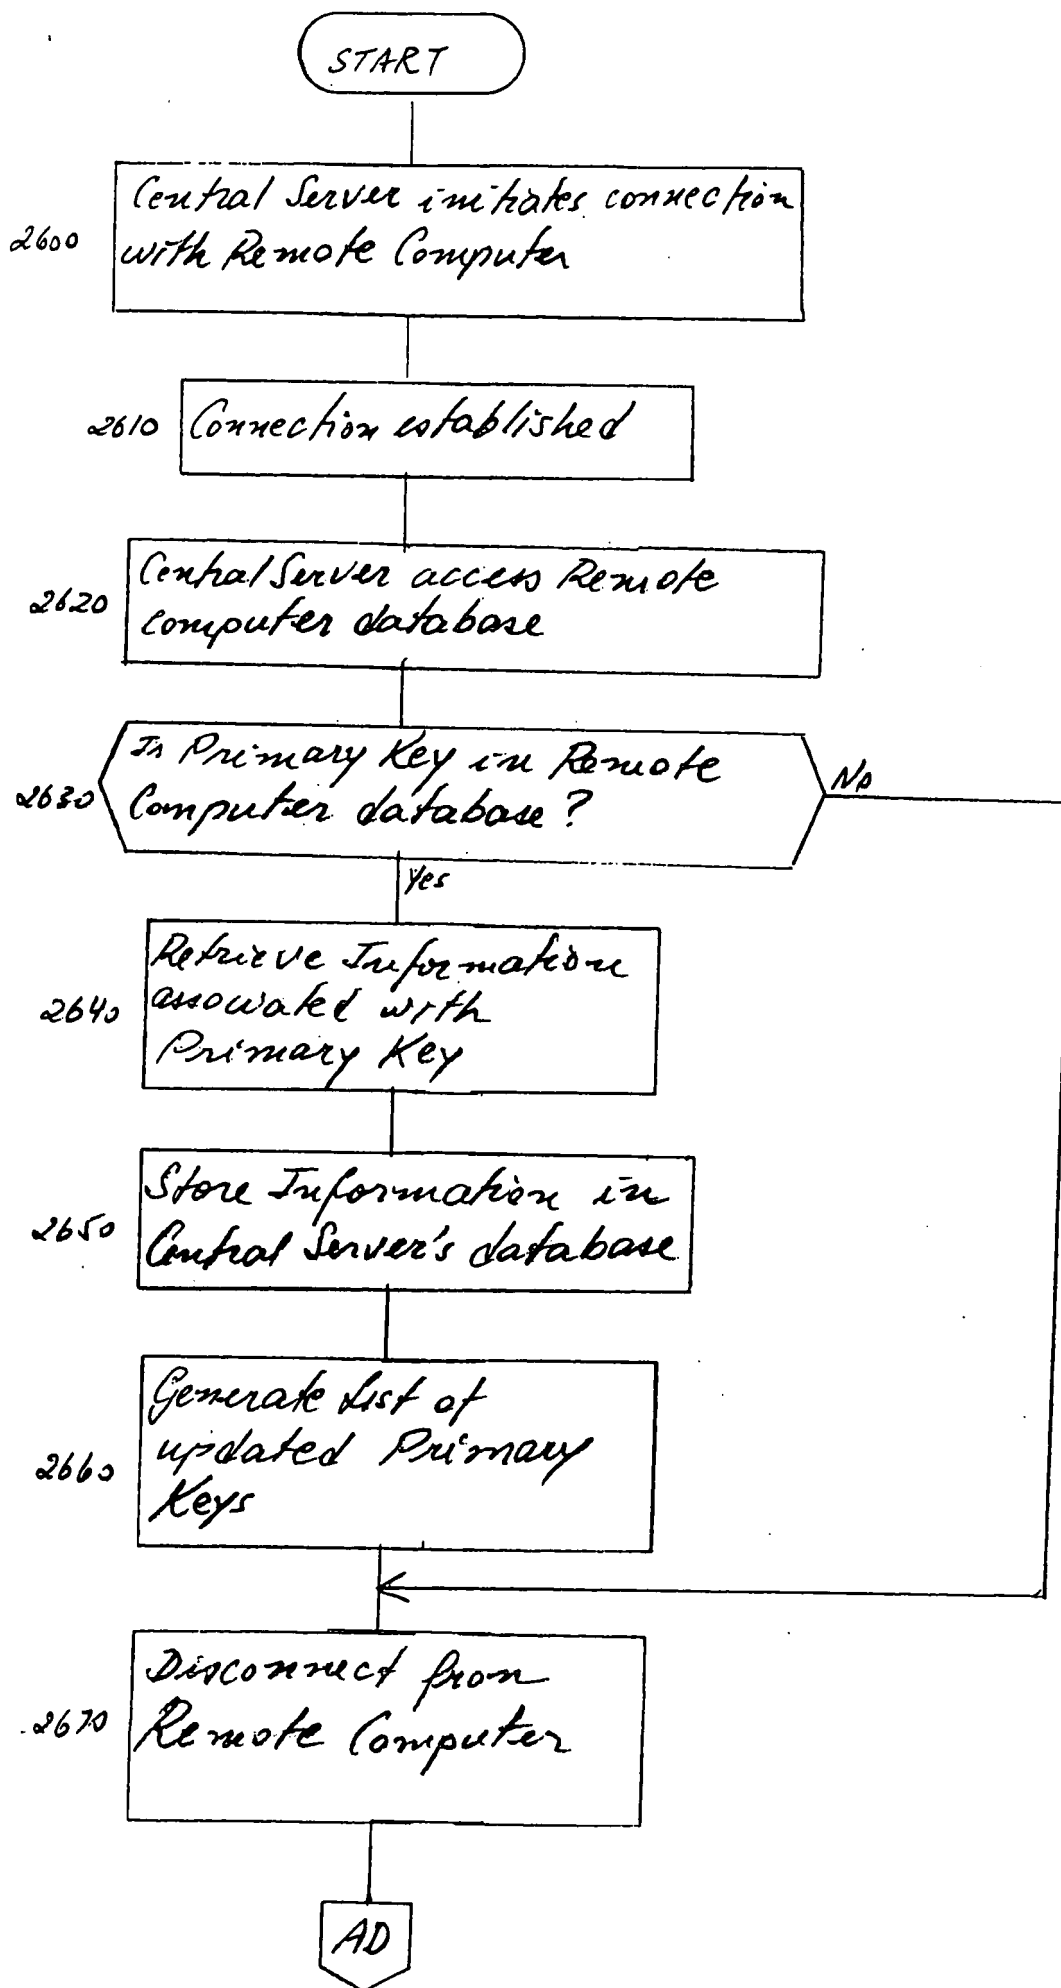 START
Central Server initiates connection
2600
with Remote Computer
2610
Connection established
Central Server access Remote
2620
computer database
Is Primary Key in Remote
No
2630
Computer database?
Yes
Retrieve Information
2640
associated with
Primary Key
Store Information in
2650
Central Server's database
Generate List of
updated Primary
2660
Keys
Disconnect from
2670
Remote Computer
AD